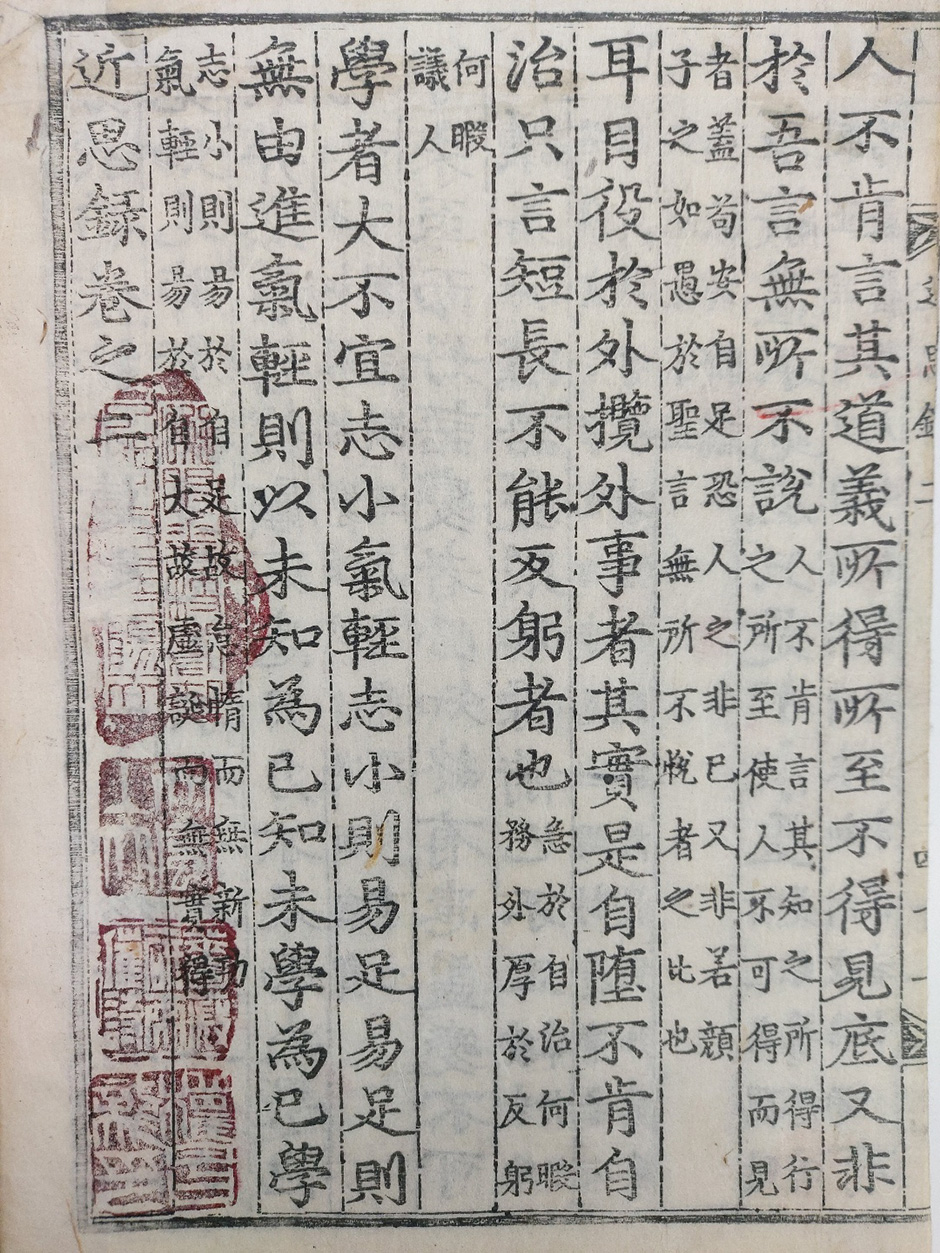 人不肯言其道義所得所至不得見底又非
於吾言無所不說
人不肯言其知之所得行
之所至使人不可得而見
者蓋苟安自足恐人之非已又非若顔
子之如愚於聖言無所不悅者之比也
耳目役於外攬外事者其實是自墮不肯自
治只言短長不能反躬者也
急於自治何暇
務外厚於反躬
何暇
議人
學者大不宜志小氣輕志小則易足易足則
無由進氣輕則以未知為已知未學為已學
志小則易於自足故怠惰而無新功
氣輕則易於自大故虛誕而無實得
近思録卷之二